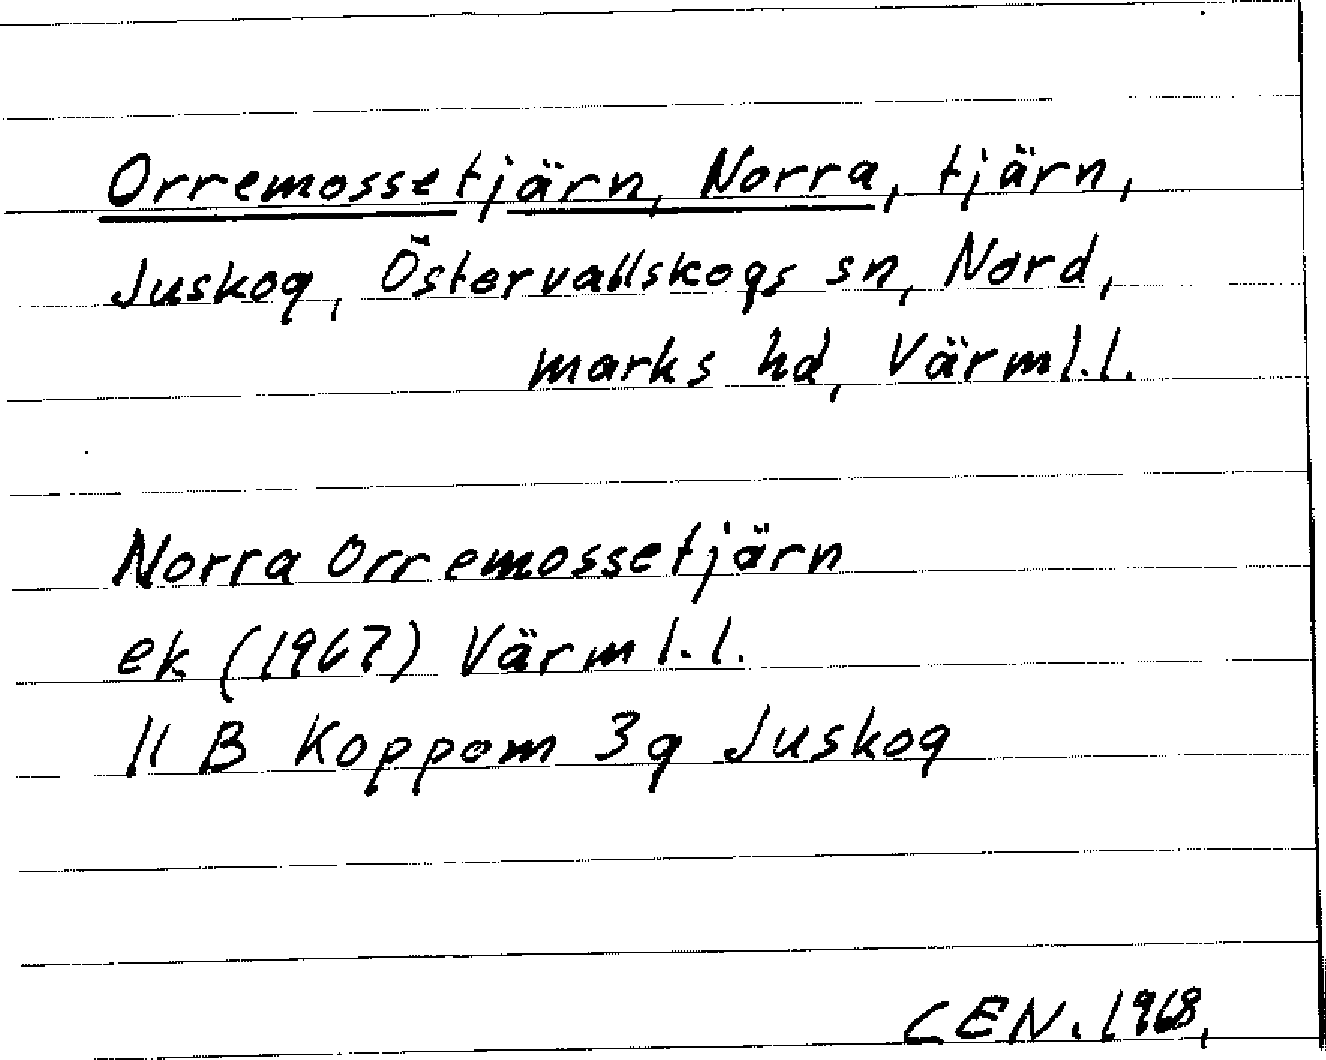 Orremossetjärn, Norra, tjärn,
Juskog, Östervallskogs sn, Nord,
marks hd, Värml.l.
Norra Orremossetjärn
ek (1967) Värml.l.
11 B Koppom 3g Juskog
CEN. 1968,